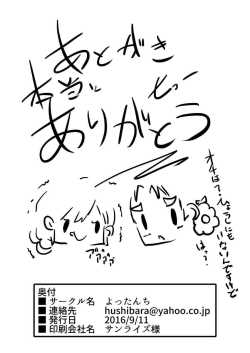 あとがき
本当に
ありがとう
オチは?…
どこにも
いないんですけど
は…?
奥付
■ サークル名　よったんち
■ 連絡先　hushibara@yahoo.co.jp
■ 発行日　2016/9/11
■ 印刷会社名　サンライズ様